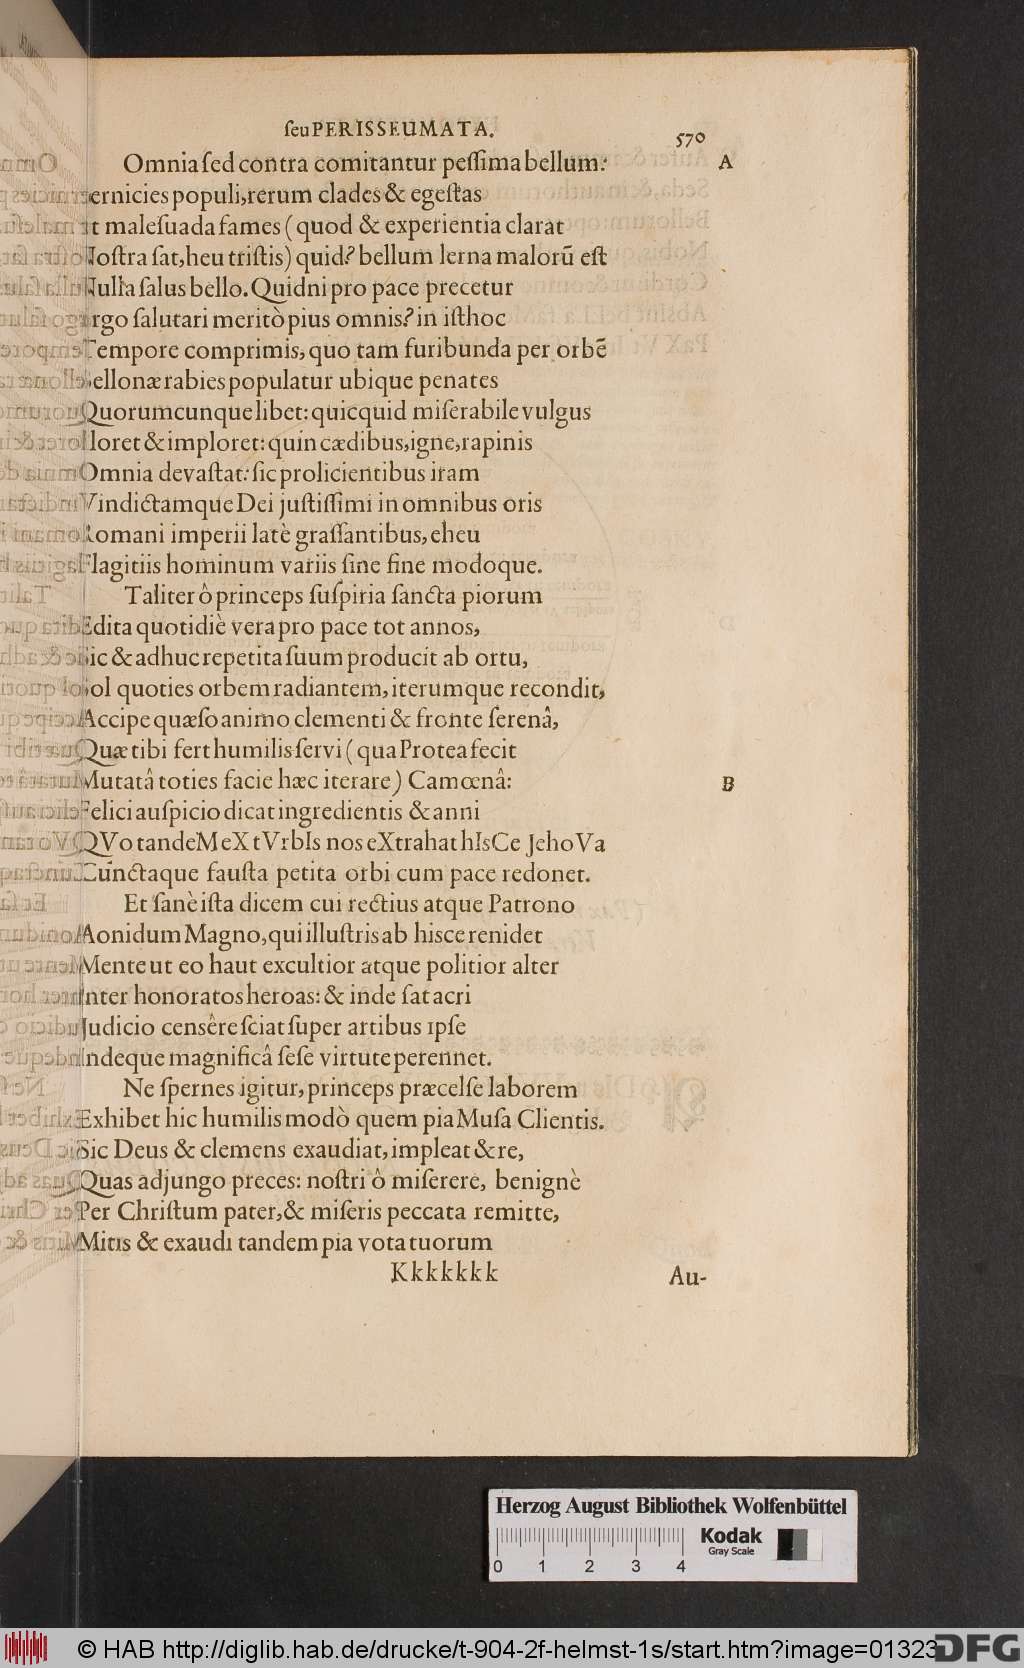 ſeu PERISSEUMATA.
570
Omnia ſed contra comitantur peſſima bellum: A
ernicies populi, rerum clades & egeſtas
t maleſuada fames ( quod & experientia clarat
Noſtra ſat, heu triſtis) quid? bellum lerna malorū eſt
Nulla ſalus bello. Quidni pro pace precetur
rgo ſalutari meritò pius omnis? in iſthoc
Tempore comprimis, quo tam furibunda per orbē
ellonæ rabies populatur ubique penates
Quorumcunque libet: quicquid miſerabile vulgus
loret & imploret: quin cædibus, igne, rapinis
Omnia devaſtat: ſic prolicientibus iram
Vindictamque Dei juſtiſſimi in omnibus oris
Romani imperii latè graſſantibus, eheu
Flagitiis hominum variis ſine fine modoque.
Taliter ô princeps ſuſpiria ſancta piorum
Edita quotidiè vera pro pace tot annos,
Sic & adhuc repetita ſuum producit ab ortu,
Sol quoties orbem radiantem, iterumque recondit,
Accipe quæſo animo clementi & fronte ſerenâ,
Quæ tibi fert humilis ſervi ( qua Protea fecit
Mutatâ toties facie hæc iterare ) Camœnâ: B
Felici auſpicio dicat ingredientis & anni
QVo tandeM eX tVrbIs nos eXtrahat hIsCe JehoVa
Cunctaque fauſta petita orbi cum pace redonet.
Et ſanè iſta dicem cui rectius atque Patrono
Aonidum Magno, qui illuſtris ab hisce renidet
Mente ut eo haut excultior atque politior alter
Inter honoratos heroas: & inde ſat acri
Judicio censêre ſciat ſuper artibus ipſe
Indeque magnificâ ſeſe virtute perennet.
Ne ſpernes igitur, princeps præcelſe laborem
Exhibet hic humilis modò quem pia Muſa Clientis.
Sic Deus & clemens exaudiat, impleat & re,
Quas adjungo preces: noſtri ô miſerere, benignè
Per Chriſtum pater, & miſeris peccata remitte,
Mitis & exaudi tandem pia vota tuorum
Kkkkkkk Au-
Herzog August Bibliothek Wolfenbüttel
Kodak
Gray Scale
0 1 2 3 4
© HAB http://diglib.hab.de/drucke/t-904-2f-helmst-1s/start.htm?image=01323
DFG